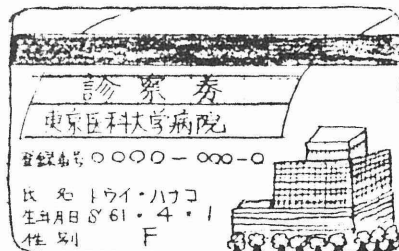 診察券
東京医科大学病院
登録番号 〇〇〇〇-〇〇〇-〇
氏名 トウイ・ハナコ
生年月日 S 61・4・1
性別 F